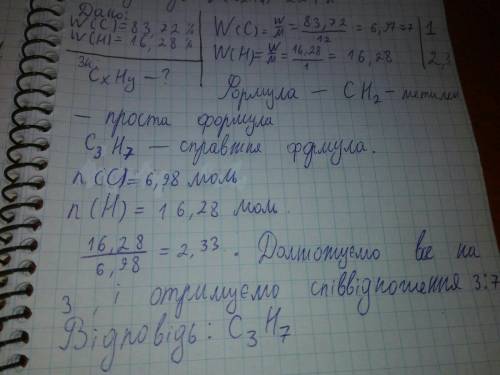 Дано:
W(C) = 83,72 %
W(H) = 16,28 %
CxHy – ?
W(C) = W/M = 83,72/12 = 6,9767 | 1
W(H) = W/M = 16,28/1 = 16,28 | 2,3
Формула – CH2 – метилен
– проста формула
C3H7 – справжня формула.
n(C) = 6,98 моль
n(H) = 16,28 моль.
16,28/6,98 = 2,33. все на
3, і отримуємо співвідношення 3:7
Відповідь: C3H7